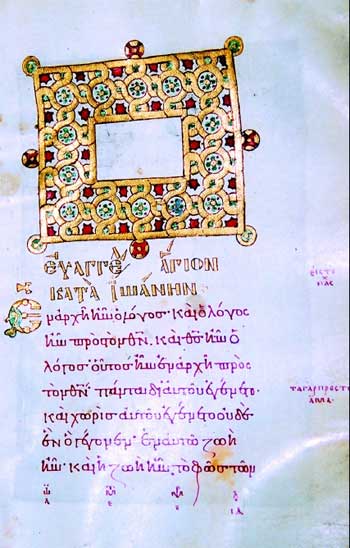 ΕΥΑΓΓΕ ΑΓΙΟΝ
ΚΑΤΑ ΙΩΑΝΗΝ
Ἐν ἀρχῆ ἦν ὁ λόγος· καὶ ὁ λόγος
ἦν πρὸς τὸν θν· καὶ θς ἦν ὁ
λόγος· οὗτος ἦν ἐν ἀρχῆ πρὸς
τὸν θν· πάντα δι αὐτοῦ ἐγένετο·
καὶ χωρὶς αὐτοῦ ἐγένετο οὐδὲ
ἓν ὃ γέγονεν· ἐν αὐτῶ ζωὴ
ἦν· καὶ ἡ ζωὴ ἦν τὸ φῶς τῶν